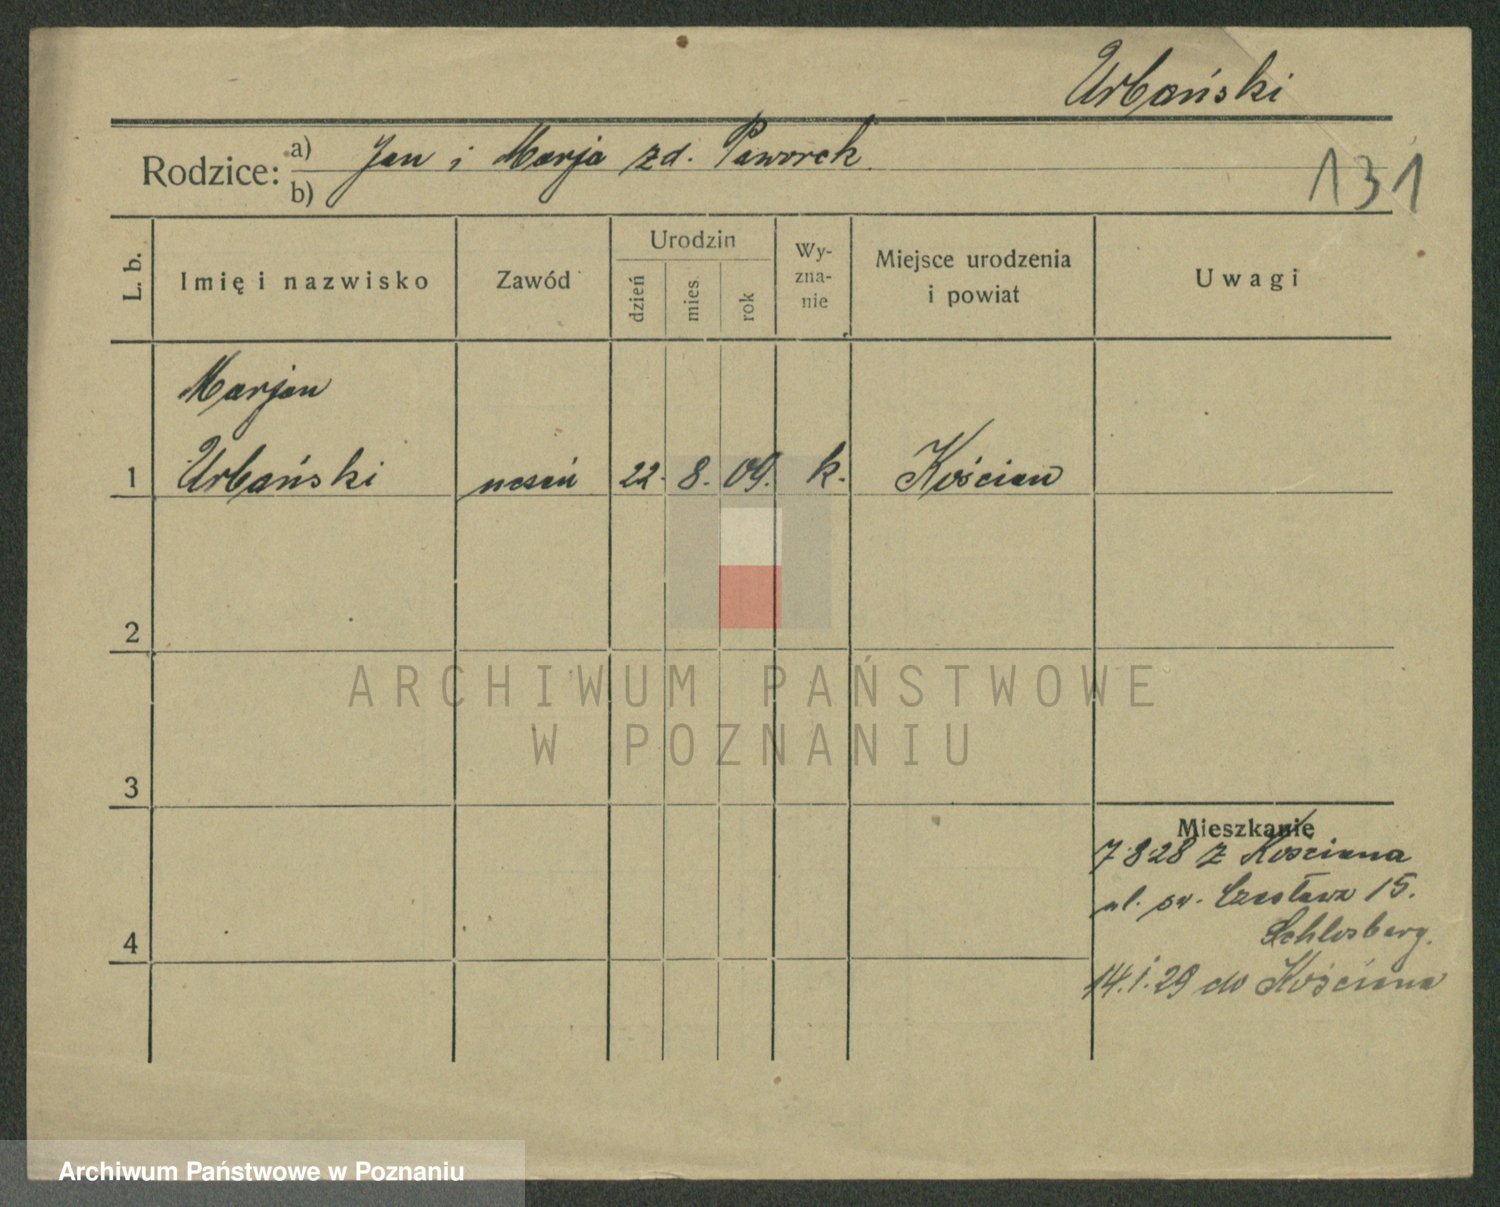 Urbański
Rodzice: a) Jan i Marja zd. Paworek
b)
131
L. b.
Imię i nazwisko
Zawód
Urodzin
dzień
mies.
rok
Wy-
zna-
nie
Miejsce urodzenia
i powiat
Uwagi
Marjan
1 Urbański uczeń 22. 8. 09. k. Kościan
2
ARCHIWUM PAŃSTWOWE
W POZNANIU
3
Mieszkanie
7 8 28 z Kościana
ul. św. Czesława 15.
Schlosberg.
4
14.1.29 do Kościana
Archiwum Państwowe w Poznaniu